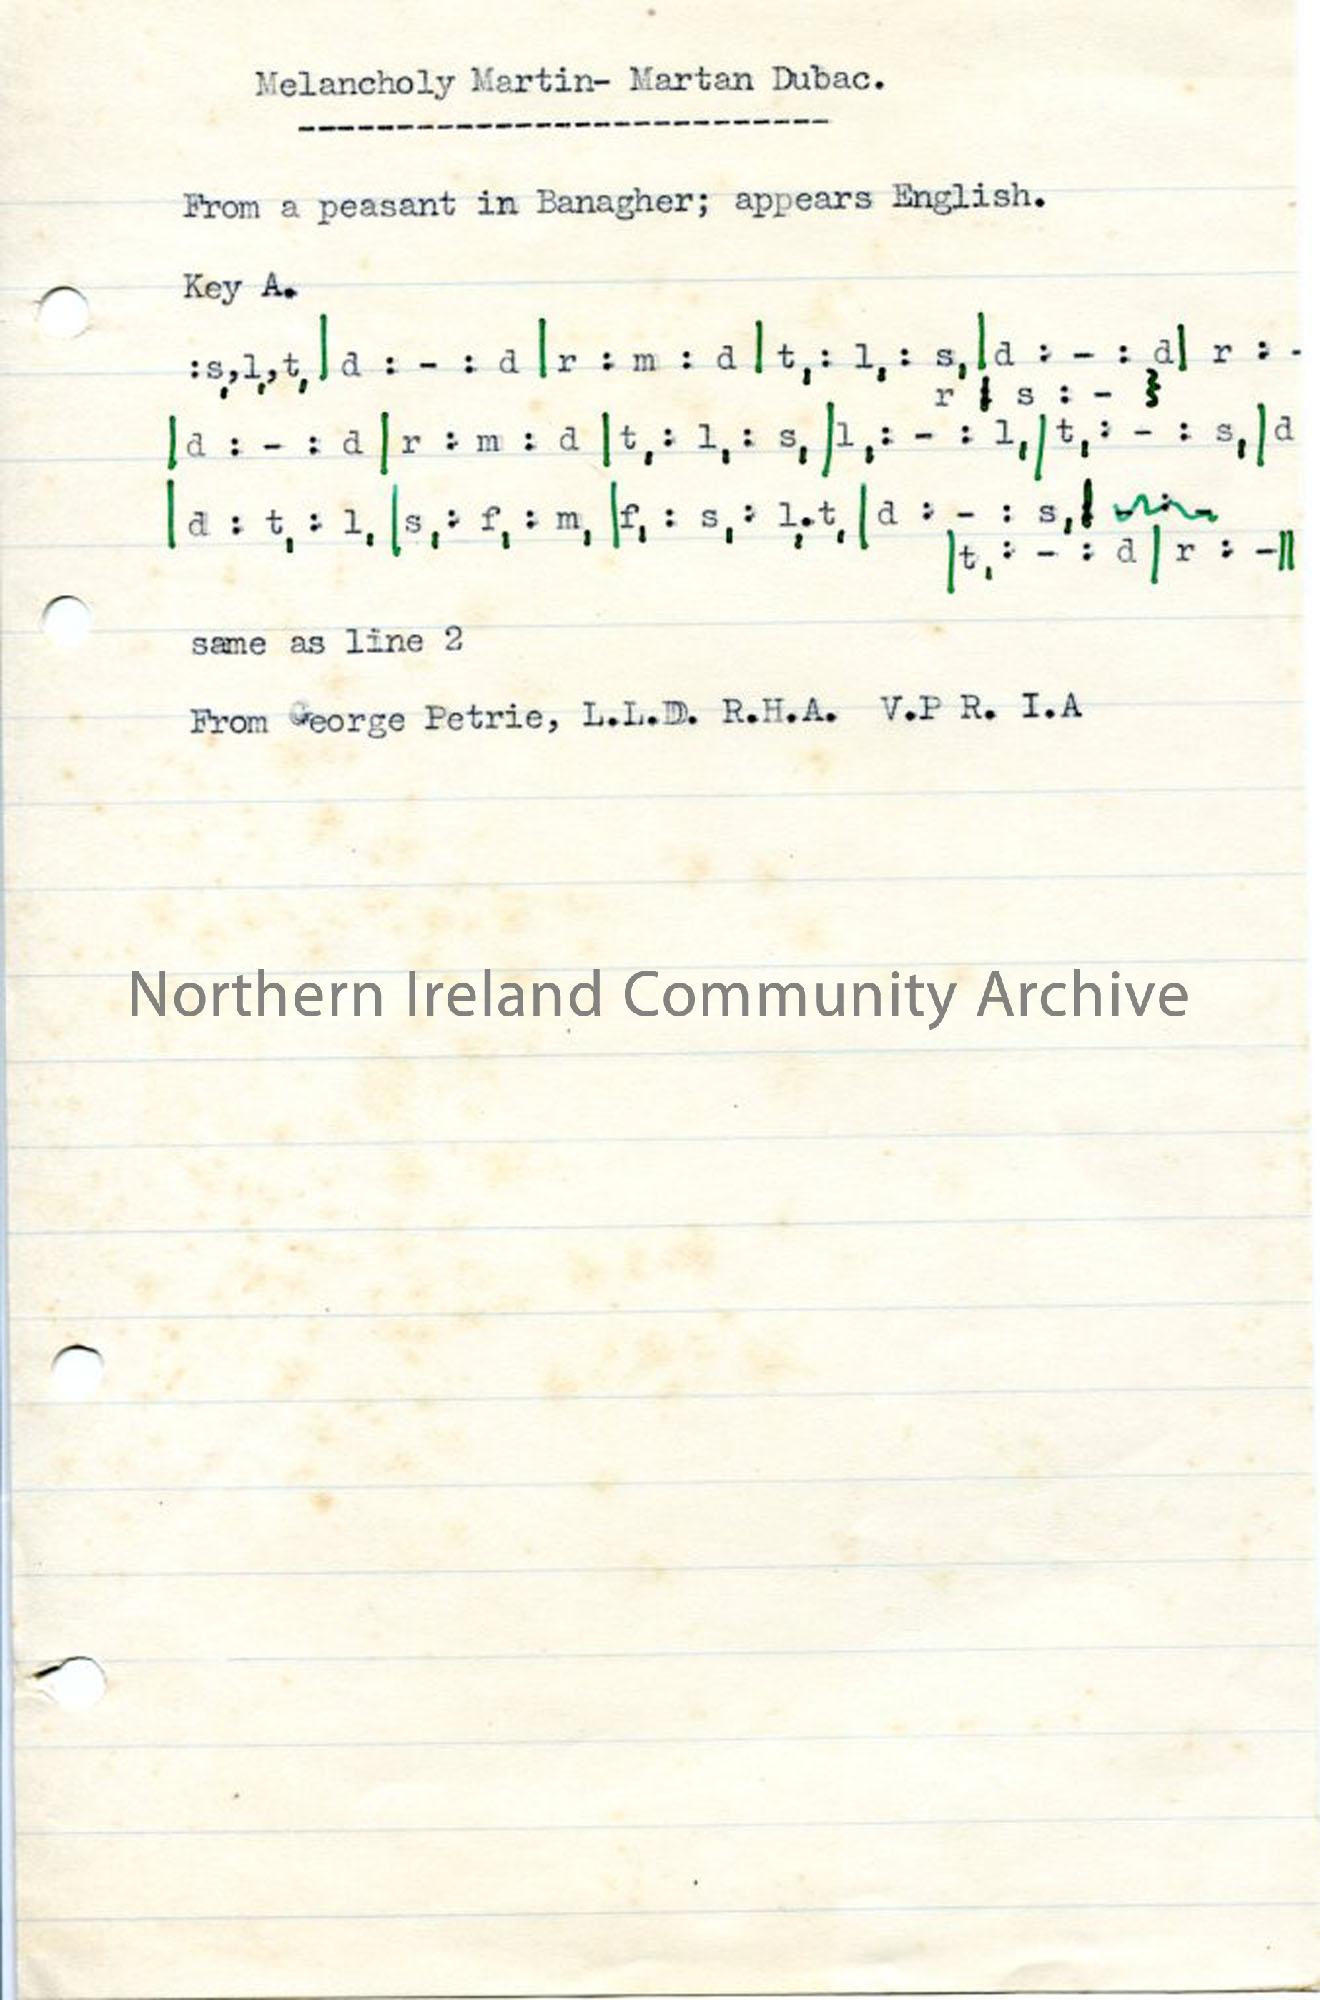 Melancholy Martin- Martan Dubac.
---------------------------
From a peasant in Banagher; appears English.
Key A.
:s,l,t,|d : - : d|r : m : d|t,: l,: s,|d : - : d| r : -
r | s : -
|d : - : d|r : m : d |t,: l,: s,|l,: - : l,|t,: - : s,|d
|d : t, : l,|s,: f,: m,|f,: s,: l,.t,|d : - : s,|
|t,: - : d|r : -||
same as line 2
From George Petrie, L.L.D. R.H.A. V.P R. I.A
Northern Ireland Community Archive